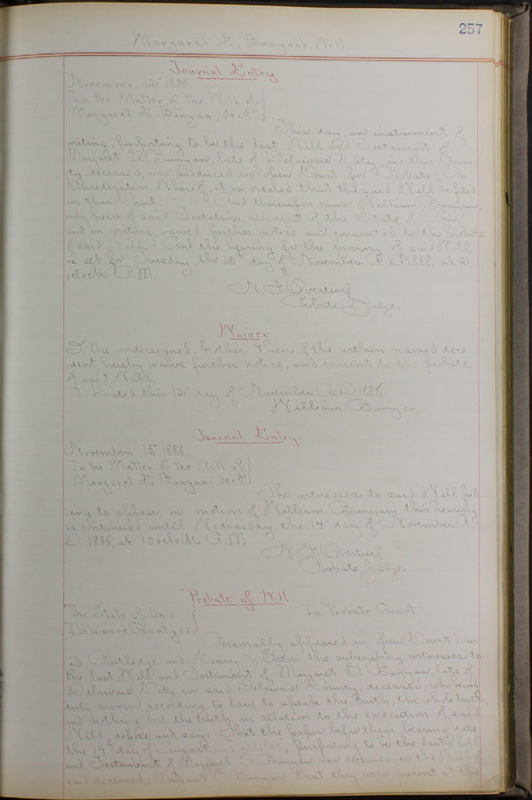 257
Margaret E. Bunyan's Will.
Journal Entry
November 12" 1888.
In the Matter of the Will of
Margaret E. Bunyan, dec'd
This day, an instrument of
writing, purporting to be the last Will and Testament of
Margaret Bunyan, late of Delaware City, in this Coun-
ty, deceased, was produced in open Court for Probate. On
Consideration Whereof, it is ordered that the said Will be filed
in this Court. And thereupon came William Bunyan,
only heir of said Testatrix, resident of the State of Ohio,
and in writing, waived further notice and consented to the probate
of said Will. And the hearing for the proving of said Will
is set for Tuesday the 13" day of November A.D. 1888, at 2
o'clock P.M.
N. F. Overturf
Probate Judge.
Waiver
I the undersigned, brother & heir of the within named dece-
dent hereby waive further notice, and consent to the probate
of said Will.
Dated this 12" day of November A.D. 1888
William Bunyan.
Journal Entry.
November 13" 1888.
In the Matter of the Will of
Margaret E. Bunyan, dec'd
The witnesses to said Will fail-
ing to appear, on motion of William Bunyan, this hearing
is continued until Wednesday, the 14" day of November A.
D. 1888, at 10 o'clock A.M.
N. F. Overturf
Probate Judge.
Probate of Will
The State of Ohio
In Probate Court
Delaware County, ss
Personally appeared in open Court Dav-
id Rutledge and Henry the subscribing witnesses to
the last Will and Testament of Margaret Bunyan, late of
Delaware City in said Delaware County, deceased, who being
duly sworn according to law to speak the truth, the whole truth,
and nothing but the truth, in relation to the execution of said
Will, depose and say: That the paper before them bearing date
the day of August A.D. purporting to be the last Will
and Testament of Margaret Bunyan now deceased, is the Will of
said deceased, Margaret Bunyan that they were present at the